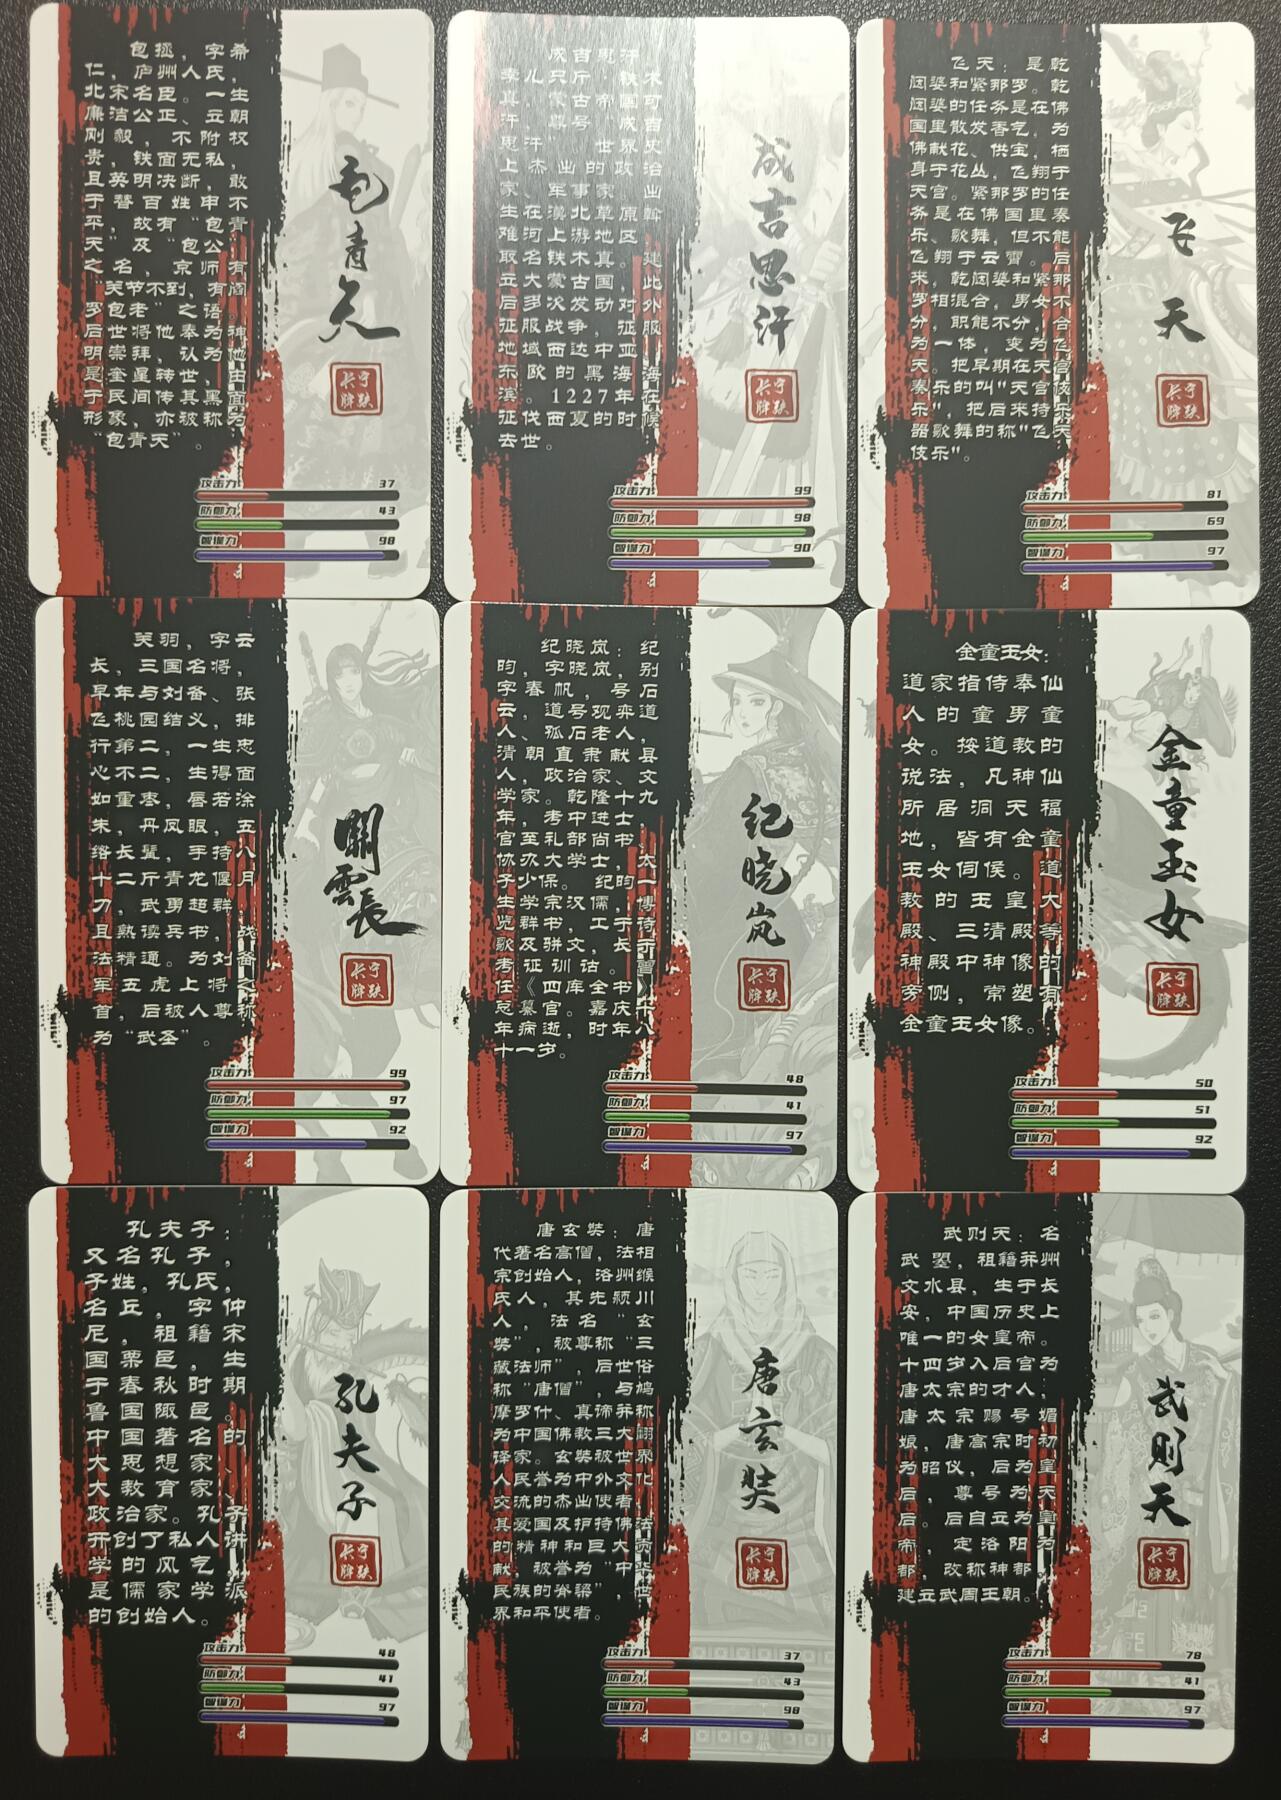 包拯，字希
仁，庐州人氏，
北宋名臣。一生
廉洁公正、立朝
刚毅，不附权
贵，铁面无私，
且英明决断，敢
于替百姓申不
平，故有“包青
天”及“包公”
之名，京师有
“关节不到，有阎
罗包老”之语。
后世将他奉为神
明崇拜，认为他
是奎星转世，由
于民间传其黑面
形象，亦被称为
“包青天”。
包青天
长宁
牌趺
攻击力 37
防御力 43
智谋力 98
成吉思汗
长宁
牌趺
攻击力 99
防御力 98
智谋力 90
飞天：是乾
闼婆和紧那罗。乾
闼婆的任务是在佛
国里散发香气，为
佛献花、供宝，栖
身于花丛，飞翔于
天宫。紧那罗的任
务是在佛国里奏
乐、歌舞，但不能
飞翔于云霄。后
来，乾闼婆和紧那
罗相混合，男女不
分，职能不分，合
为一体，变为飞
天。把早期在天宫
奏乐的叫"天宫伎
乐"，把后来持乐
器歌舞的称"飞天
伎乐"。
飞天
长宁
牌趺
攻击力 81
防御力 69
智谋力 97
关羽，字云
长，三国名将，
早年与刘备、张
飞桃园结义，排
行第二，一生忠
心不二，生得面
如重枣，唇若涂
朱，丹凤眼，五
绺长髯，手持八
十二斤青龙偃月
刀，武勇超群，
且熟读兵书，战
法精通。为刘备
军五虎上将之
首，后被人尊称
为“武圣”。
關雲長
长宁
牌趺
攻击力 99
防御力 97
智谋力 92
纪晓岚：纪
昀，字晓岚，别
字春帆，号石
云，道号观弈道
人、孤石老人，
清朝直隶献县
人，政治家、文
学家。乾隆十九
年，考中进士，
官至礼部尚书、
协办大学士，太
子少保。纪昀一
生学宗汉儒，博
览群书，工于诗
歌及骈文，长于
考证训诂。曾
任《四库全书》
总纂官。嘉庆十
年病逝，时年八
十一岁。
纪晓岚
长宁
牌趺
攻击力 48
防御力 41
智谋力 97
金童玉女：
道家指侍奉仙
人的童男童
女。按道教的
说法，凡神仙
所居洞天福
地，皆有金童
玉女伺侯。道
教的玉皇大
殿、三清殿等
神殿中神像的
旁侧，常塑有
金童玉女像。
金童玉女
长宁
牌趺
攻击力 50
防御力 51
智谋力 92
孔夫子：
又名孔子，
子姓，孔氏，
名丘，字仲
尼，祖籍宋
国栗邑，生
于春秋时期
鲁国陬邑。
中国著名的
大思想家、
大教育家、
政治家。孔子
开创了私人讲
学的风气，
是儒家学派
的创始人。
孔夫子
长宁
牌趺
攻击力 48
防御力 41
智谋力 97
唐玄奘：唐
代著名高僧，法相
宗创始人，洛州缑
氏人，其先颍川
人，法名“玄
奘”，被尊称“三
藏法师”，后世俗
称“唐僧”，与鸠
摩罗什、真谛并称
为中国佛教三大翻
译家。玄奘被世界
人民誉为中外文化
交流的杰出使者，
其爱国及护持佛法
的精神和巨大贡
献，被誉为“中华
民族的脊梁”，世
界和平使者。
唐玄奘
长宁
牌趺
攻击力 37
防御力 43
智谋力 98
武则天：名
武曌，祖籍并州
文水县，生于长
安，中国历史上
唯一的女皇帝。
十四岁入后宫为
唐太宗的才人，
唐太宗赐号媚
娘，唐高宗时初
为昭仪，后为皇
后，尊号为天
后。后自立为皇
帝，定洛阳为
都，改称神都，
建立武周王朝。
武则天
长宁
牌趺
攻击力 78
防御力 41
智谋力 97